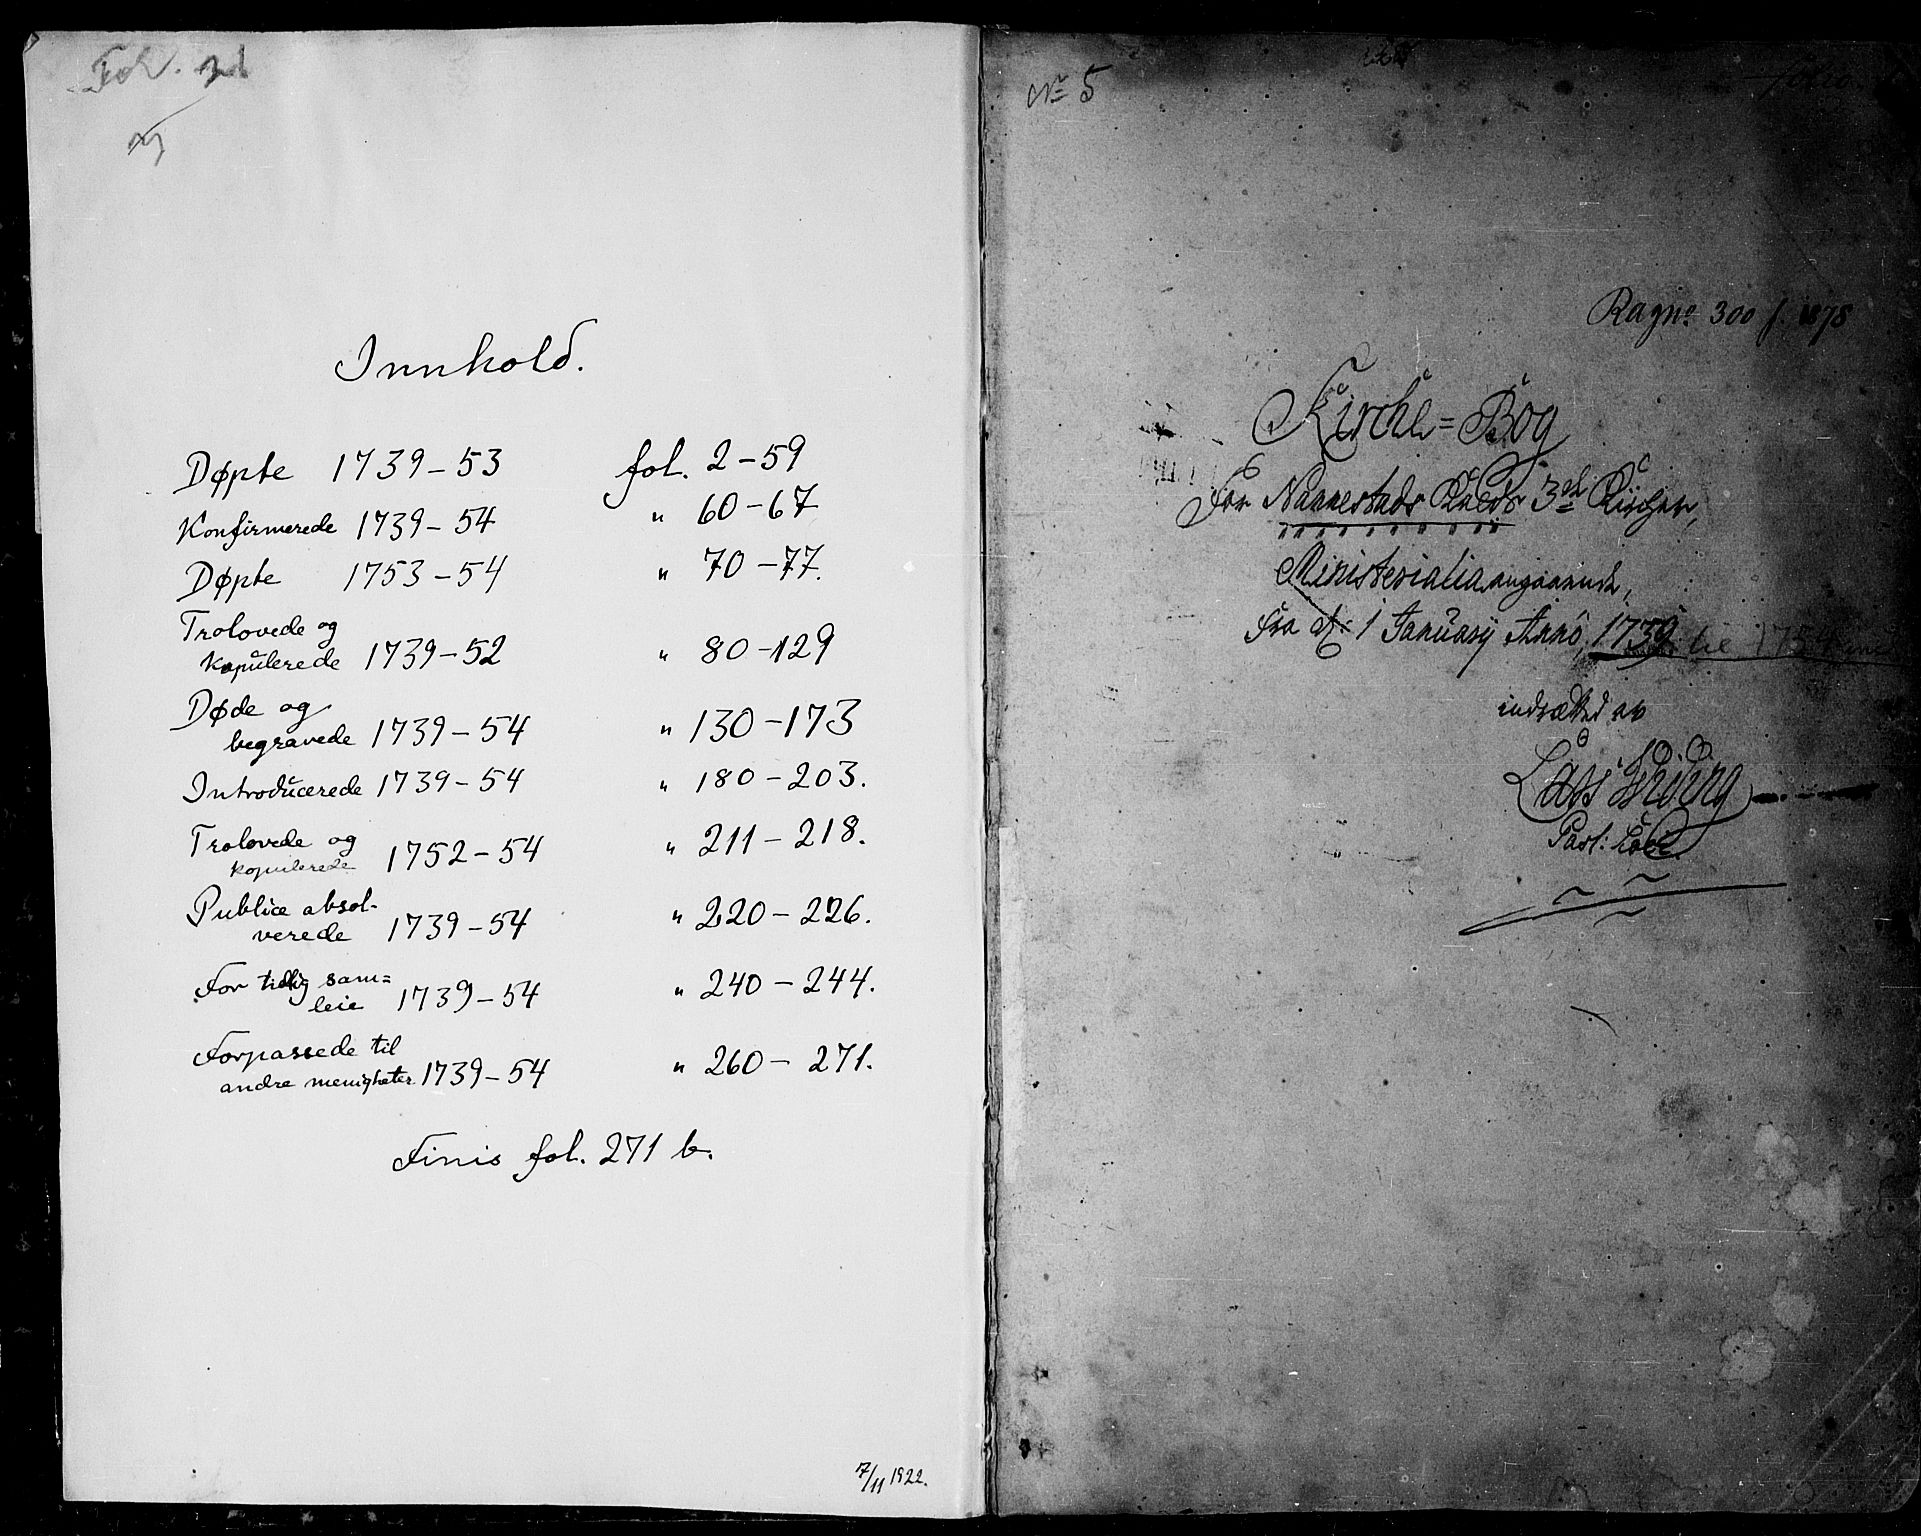 Innhold.
Døpte 1739-53 fol. 2-59
Konfirmerede 1739-54 " 60-67
Døpte 1753-54 " 70-77.
Trolovede og
kopulerede 1739-52 " 80-129
Døde og
begravede 1739-54 " 130-173
Introducerede 1739-54 " 180-203.
Trolovede og
kopulerede 1752-54 " 211-218.
Publice absol-
verede 1739-54 " 220-226.
For tidlig sam=
leie 1739-54 " 240-244.
Forpassede til
andre menigheter 1739-54 " 260-271.
Finis fol. 271 b.
7/11 1922.
No 5
folio
300 f. 1878
Kirche=Bog
For Nannestads 3de Kircher,
Ministerialia angaaende,
Fra d: 1 January Anno, 1739 til 1754
indrætted av
Past: Loci.